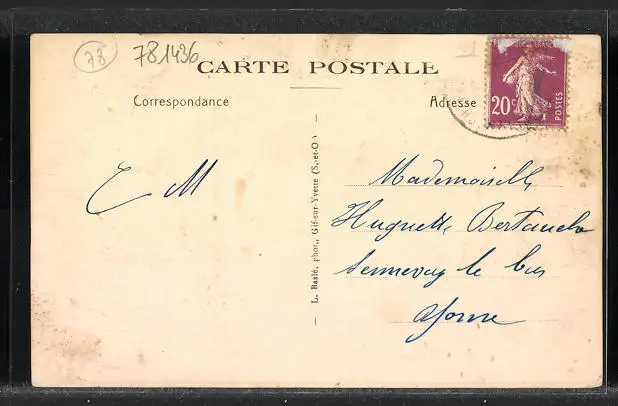 78
781436
CARTE POSTALE
Correspondance
Adresse
20c
POSTES
E M
Mademoiselle
Huguette Bertauche
Sennevoy le bas
Yonne
L. Baslé, phot., Gif-sur-Yvette (S.-et-O.)